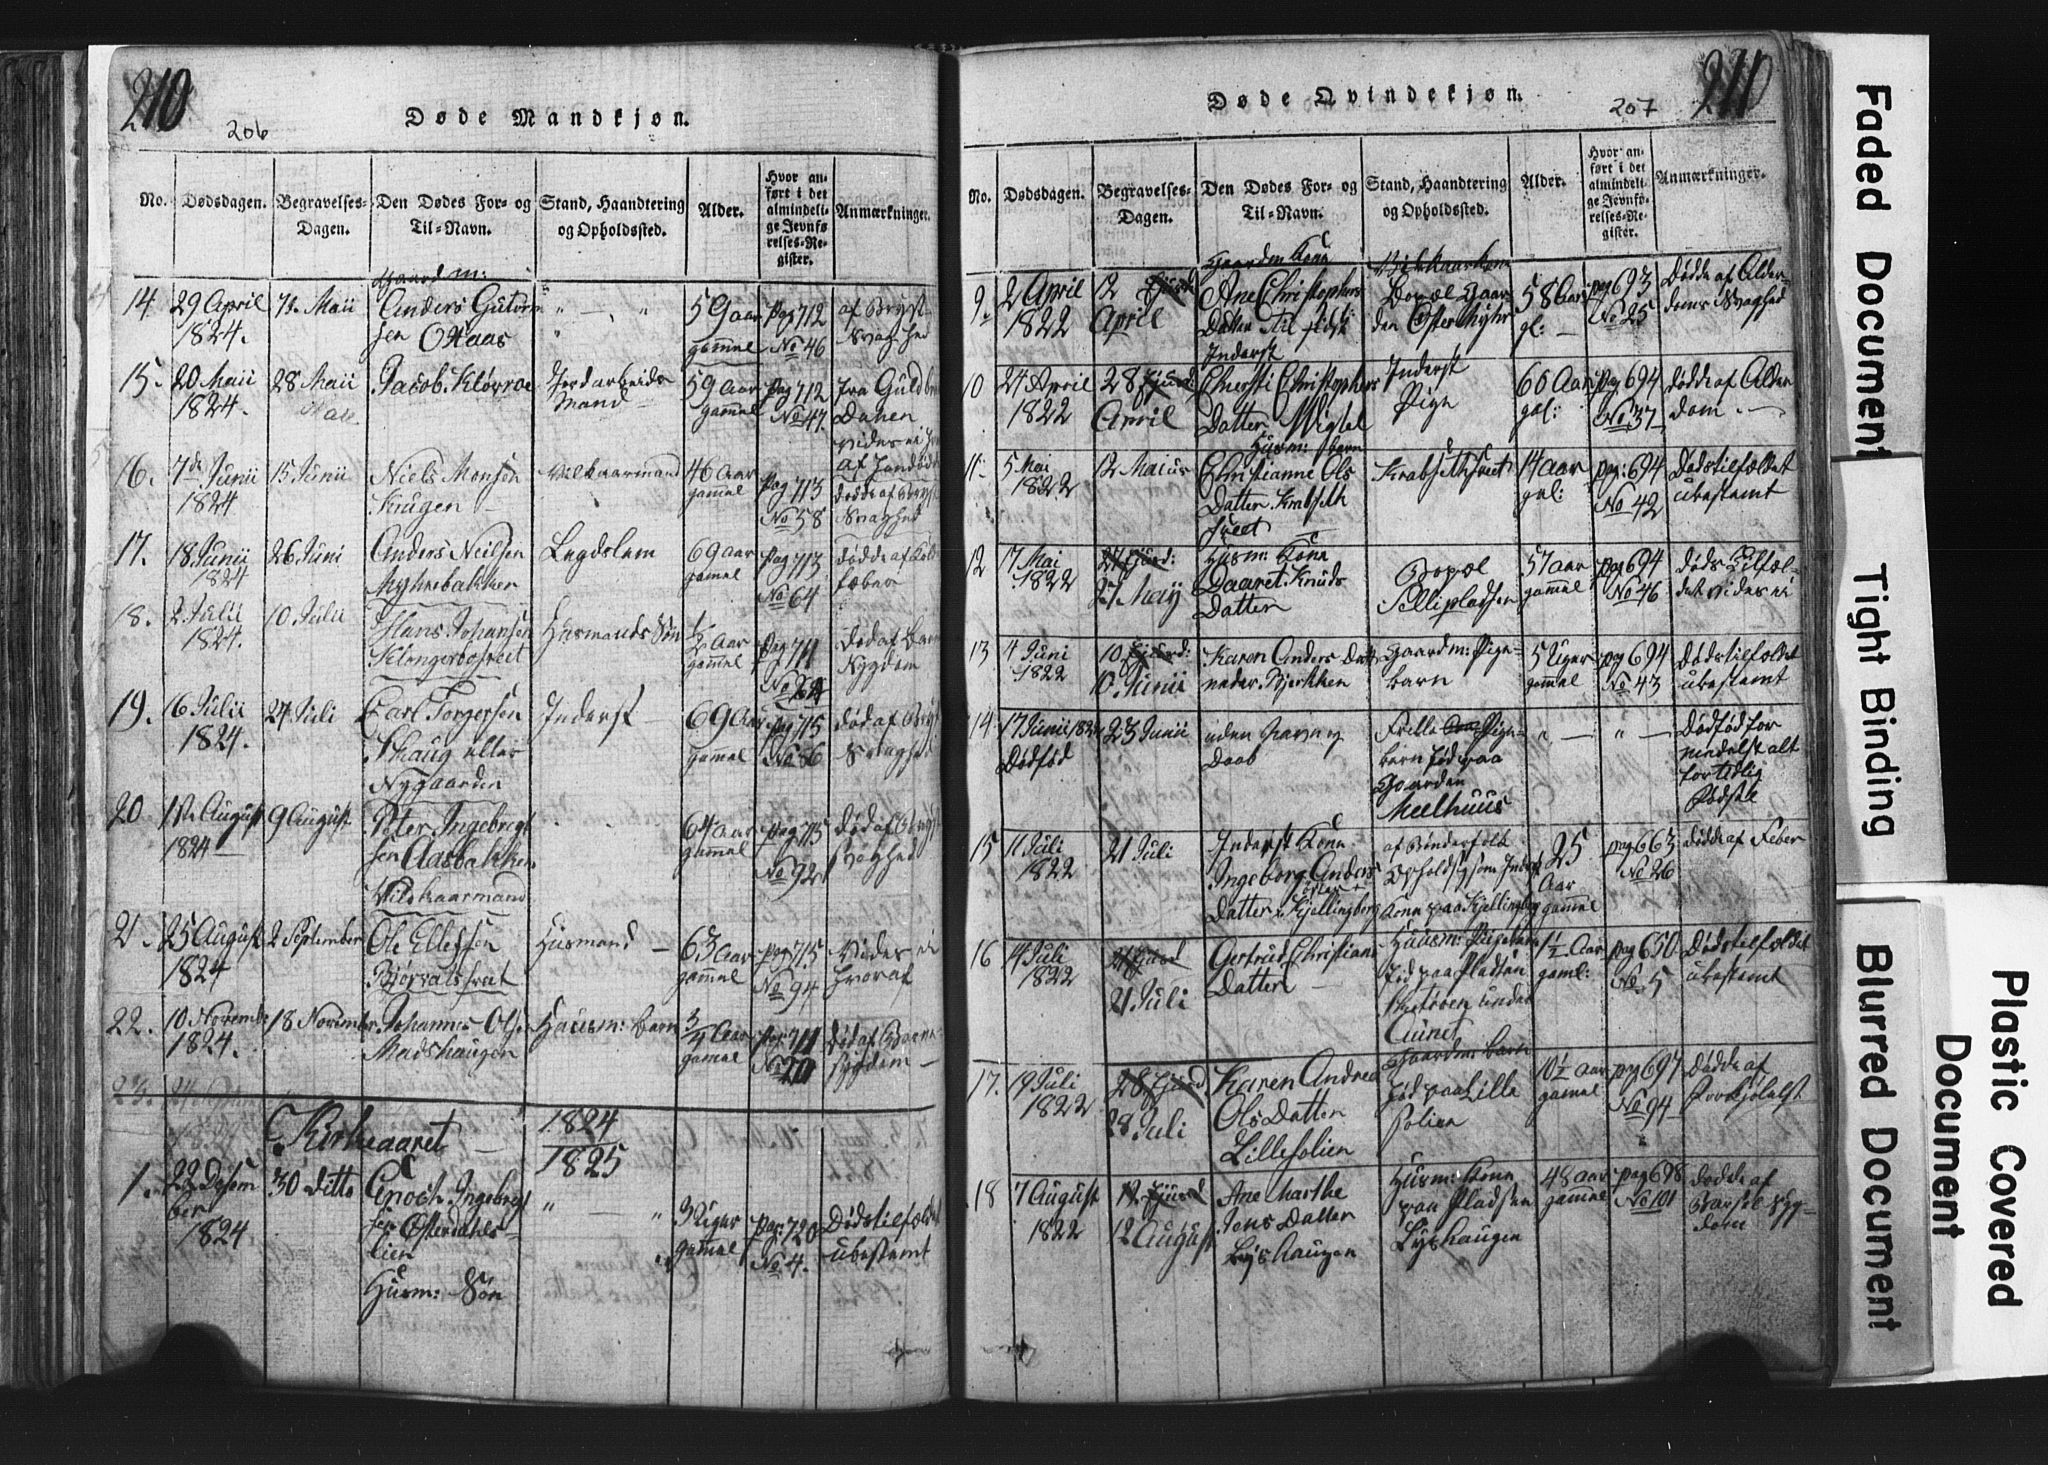 210
206
Døde Mandkjøn.
No.
Dødsdagen.
Begravelses-
Dagen.
Den Dødes For- og
Til-Navn.
Stand, Haandtering
og Opholdssted.
Alder.
Hvor an-
ført i det
almindeli-
ge Jevnfø-
relses-Re-
gister.
Anmærkninger.
14
29 April
1824.
Maii
Gaardm:
Anders Gutorm
sen Haas
59 aar
gammel
Pag 712
No 46
af Bryst-
Svaghed
15.
20 Maii
1824.
28 Maii
Jacob Kløvroe
Jordarbeids
Mand
59 aar
gammel
Pag 712
No 47.
fra Guldb
Dalen
16.
7de Junii
1824
15 Junii
Niels Monsen
Krugen
Vilkaarmand
46 aar
gammel
Pag 713
No 58
døde af Bryst
Svaghed
17.
18 Junii
1824
26 Juni
Anders Neilsen
Myhrebakken
Legdslem
69 aar
gamel
Pag 713
No 64
Dødde af
feber
18.
2 Julii
1824.
10 Julii
Hans Johansen
Klongerbosveit
Husmands Søn
1/2 aar
gammel
Pag 711
Død af Barn
Sygdom
19.
16 Julii
1824.
24 Juli
Carl Torgersen
Skaug eller
Nygaarden
Inderst
69 Aar
gamel
Pag 715
No 86
Død af Bryst
Svaghed
20
August
1824
9 August
Peter Ingebregt
sen Aasbakken
Vilkaarmand
64 aar
gammel
pag 715
No 92
død af Bryst
Svaghed
21.
25 August
1824
2 September
Ole Ellefsen
Bjørvalsveit
Husmand
63 Aar
gammel
pag 715
No 94
Vides ei
hvoraf
22.
10 Novembr
1824.
18 Novembr
Johannes Olsen
Madshaugen
Huusm: barn
3/4 Aar
gamel
pag: 711
No 20
Død af Barne
sygdom
23.
Kirkeaaret
1824
1825
1.
22 Desem
ber
1824
30 ditto
Enoch Ingebregt
sen Østerdahls-
lien
Husm: Søn
3 Uger
gammel
Pag: 720
No 4.
Dødstilfældet
ubestemt
211
207
Døde Qvindekjøn.
No.
Dødsdagen.
Begravelses-
Dagen.
Den Dødes For- og
Til-Navn.
Stand, Haandtering
og Opholdssted.
Alder.
Hvor an-
ført i det
almindeli-
ge Jevnfø-
relses-Re-
gister.
Anmærkninger.
9.
2 April
1822
12
April
Gaardm Kone
Ane Christophers
Datter
Bopæl Gaar
den Østermyhr
58 Aar
gl:
pag 693
No 25
Dødde af Alder-
doms Svaghed
10
24 April
1822
28
April
Inderst
Kirsti Christophers
Datter Wigsel
Inderst
Pige
60 Aar
gal:
pag 694
No 37
dødde af Alder
dom
11.
5 Mai
1822
12 Maius
Husm: barn
Christianne Ols
Datter Krabseth
sveet
Krabsethsveet
14 aar
gal:
pag: 694
No 42
Dødstilfældet
ubestemt
12
17 Mai
1822
27 Maÿ
Husm: Kone
Maaret Knuds
Datter
Bopæl
57 aar
gammel
pag 694
No 46
døds Tilfæl-
det vides ei
13
4 Juni
1822
10
10 Junii
Karen Anders Datt
neder Bjerkken
Gaardm: Pige-
barn
5 Uger
gammel
pag 694
No 43
Dødstilfældet
ubestemt
14
17 Junii 1822
Dødfød
23 Junii
uden Navn og
Daab
Frille Pige-
barn fød paa
Gaarden
Meelhuus
Dødfød for
medelst alt
for tidlig
Fødsel
15
11 Juli
1822
21 Juli
Inderst Kone
Ingeborg Anders
Datter Kjellingberg
af Bonderfolk
Inderst
Kone paa Kjellingberg
25
Aar
gammel
pag 663
No 26
dødde af Feber
16
14 Juli
1822
21 Juli
Gertrud Christians
Datter
Huusm: Pigebarn
fød paa Pladsen
under
Aunet
1 1/2 Aar
gaml:
pag 650
No 5
Dødstilfældet
ubestemt
17.
19 Juli
1822
28
28 Juli
Karen Andrea
Ols Datter
Lillefolien
Gaardm: barn
fød paa Lille
Folien
10 1/2 aar
gamel
pag 697
No 94
Dødde af
Forkjølelse
18
7 August
1822
12
12 August
Ane Marthe
Jens Datter
Lÿshaugen
Husm: Kone
paa Pladsen
Lÿshaugen
48 aar
gammel
pag 698
No 101
dødde af
Barsel Syg-
dom
Faded Document
Tight Binding
Blurred Document
Plastic Covered
Document